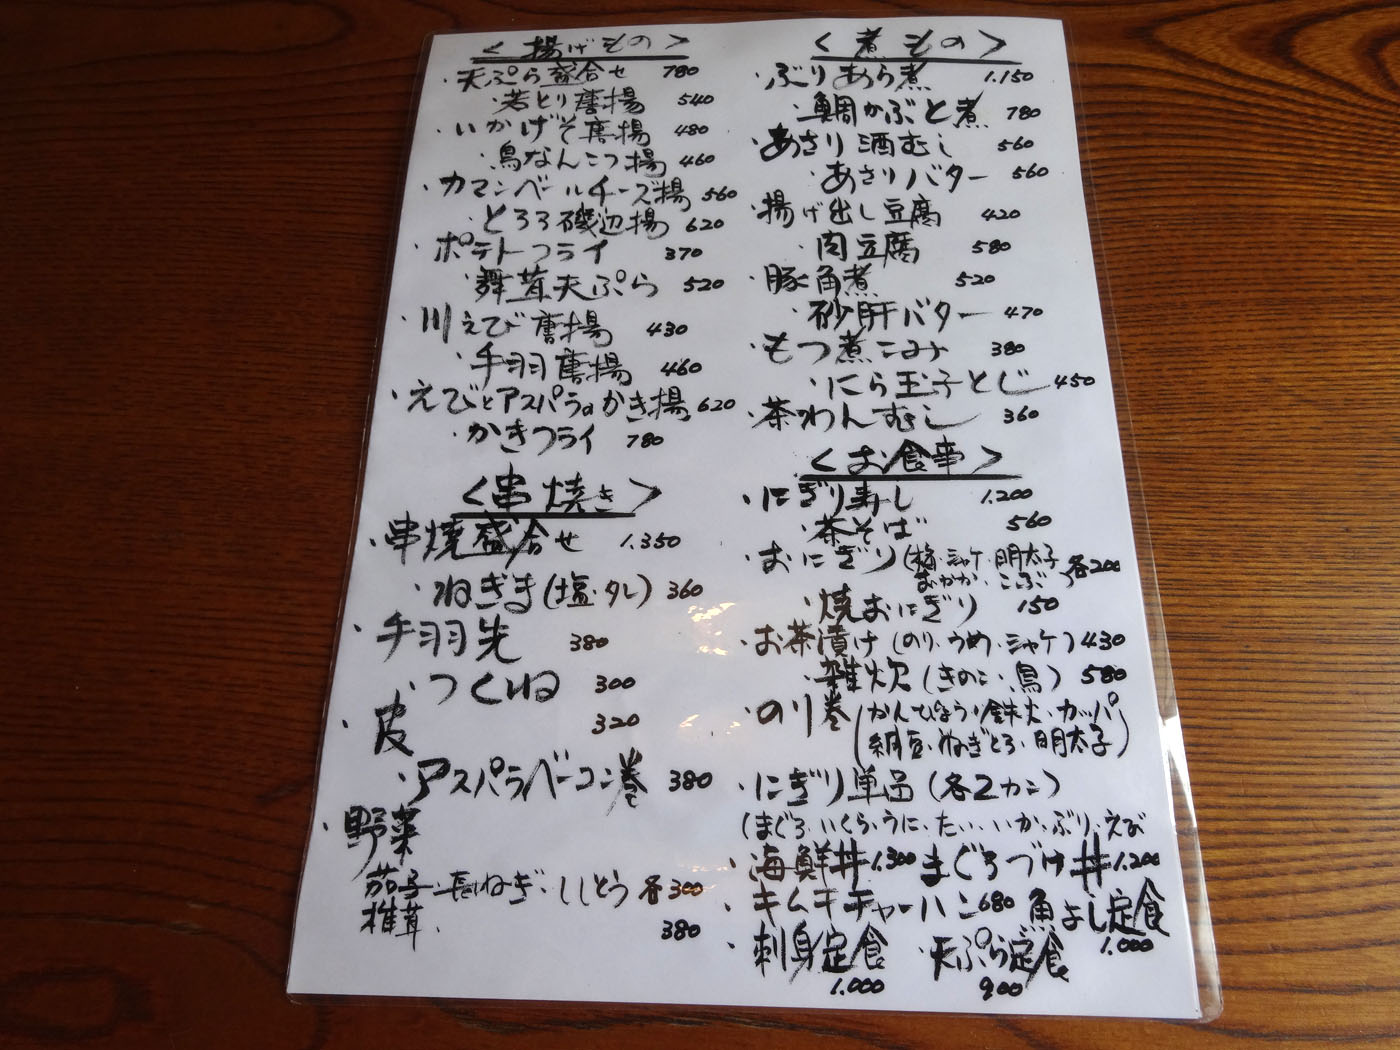 ＜揚げもの＞
・天ぷら盛合せ 780
・若とり唐揚 540
・いかげそ唐揚 480
・鳥なんこつ揚 460
・カマンベールチーズ揚 560
・とろろ磯辺揚 620
・ポテトフライ 370
・舞茸天ぷら 520
・川えび唐揚 430
・手羽唐揚 460
・えびとアスパラのかき揚 620
・かきフライ 780
＜串焼き＞
・串焼盛合せ 1.350
・ねぎま(塩・タレ) 360
・手羽先 380
・つくね 300
・皮 320
・アスパラベーコン巻 380
・野菜
茄子・長ねぎ・ししとう 各300
椎茸 380
＜煮もの＞
・ぶりあら煮 1.150
・鯛かぶと煮 780
・あさり酒むし 560
・あさりバター 560
・揚げ出し豆腐 420
・肉豆腐 580
・豚角煮 520
・砂肝バター 470
・もつ煮こみ 380
・にら玉子とじ 450
・茶わんむし 360
＜お食事＞
・にぎり寿し 1.200
・茶そば 560
・おにぎり(梅・シャケ・明太子
おかか・こぶ) 各200
・焼おにぎり 150
・お茶漬け(のり・うめ・シャケ) 430
・雑炊(きのこ・鳥) 580
・のり巻(かんぴょう・鉄火・カッパ
納豆・ねぎとろ・明太子)
・にぎり単品(各2カン)
(まぐろ・いくら・うに・たい・いか・ぶり・えび
・海鮮丼 1.300 まぐろづけ丼 1.200
・キムチチャーハン 680 魚よし定食
1.000
・刺身定食 ・天ぷら定食
1.000 900